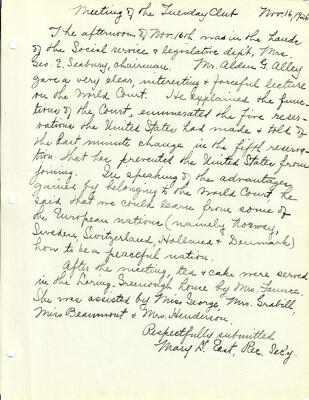 Meeting of the Tuesday Club Nov. 16, 1926
The afternoon of Nov. 16th was in the hands
of the Social service & legislative dep't, Mrs.
Geo. E. Seabury, chairman. Mr. Alden G. Alley
gave a very clear, interesting & forceful lecture
on the World Court. He explained the func-
tions of the Court, enumerated the five reser-
vations the United States had made & told of
the last minute change in the fifth reserva-
tion that has prevented the United States from
joining. In speaking of the advantages
gained by belonging to the World Court, he
said that we could learn from some of
the European nations (namely Norway,
Sweden, Switzerland, Holland & Denmark)
how to be a peaceful nation.
After the meeting, tea & cake were served
in the Loring-Greenough house by Mrs. Faunce.
She was assisted by Miss George, Mrs. Grabill,
Miss Beaumont & Mrs. Henderson.
Respectfully submitted
Mary D. East, Rec. Sec'y.